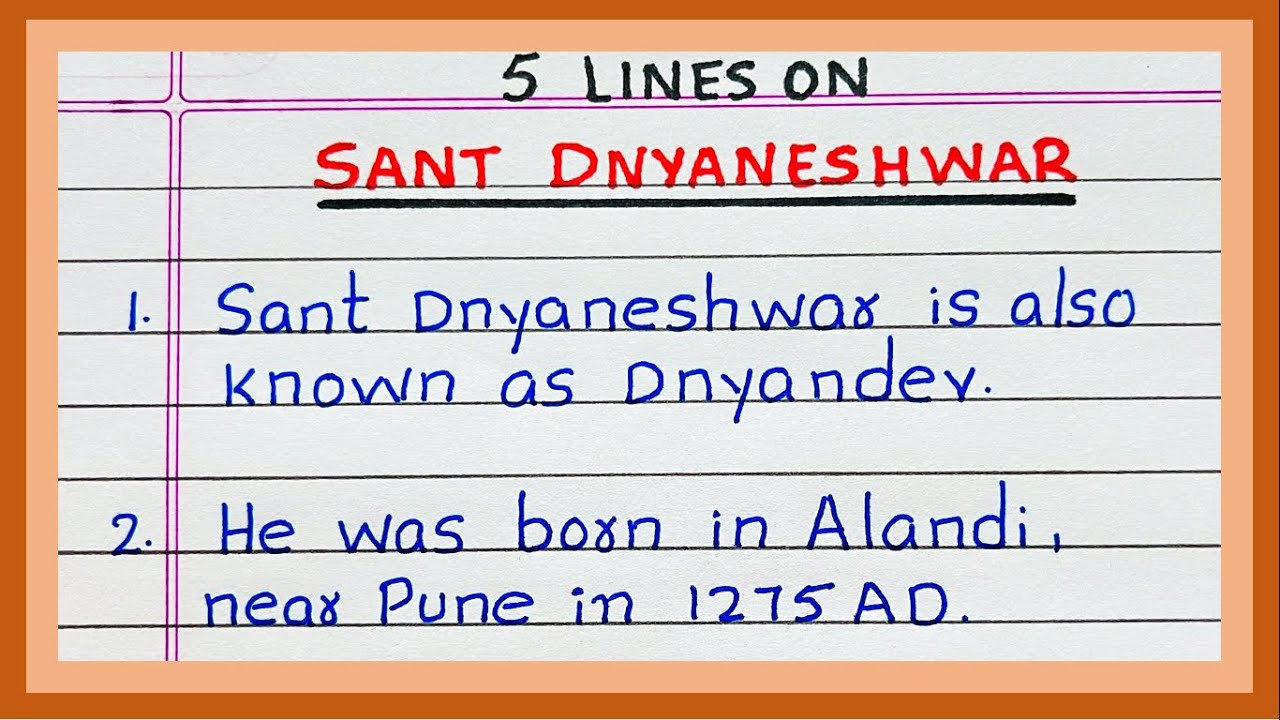 5 LINES ON
SANT DNYANESHWAR
1. Sant Dnyaneshwar is also
known as Dnyandev.
2. He was born in Alandi,
near Pune in 1275 AD.